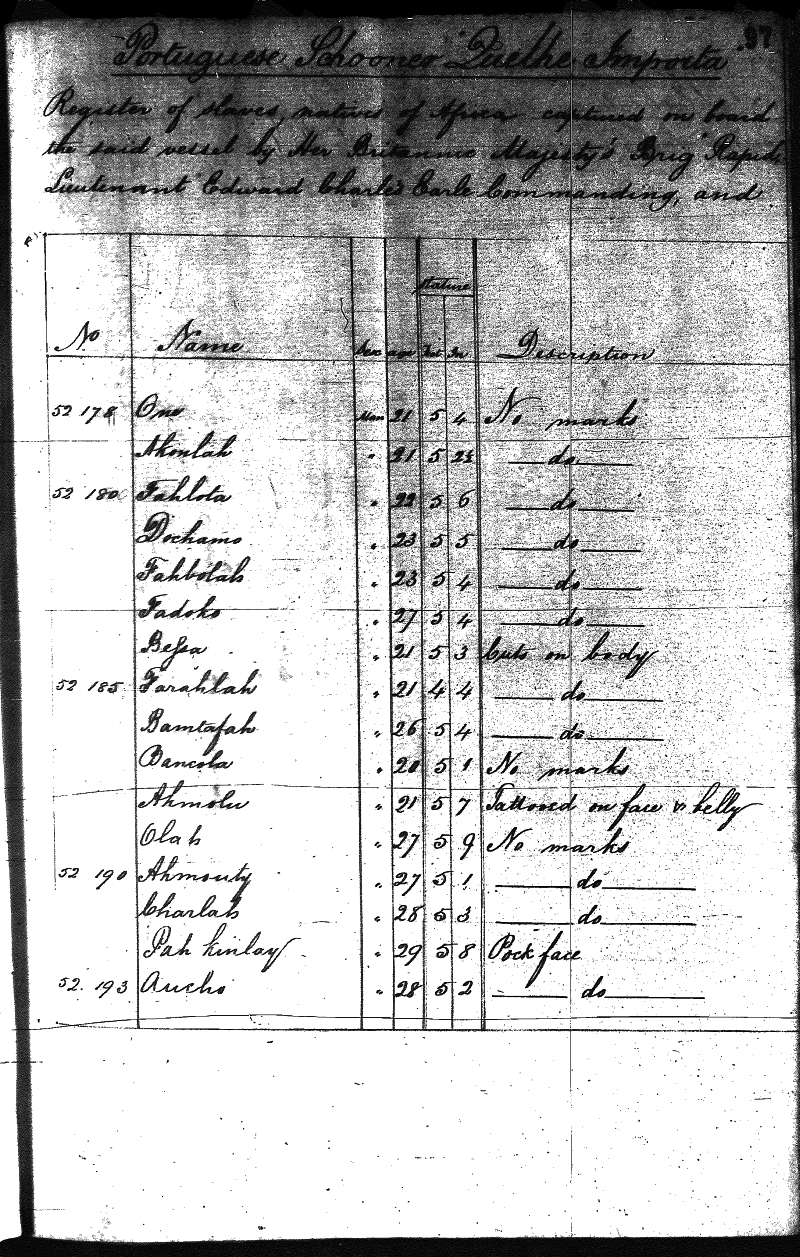 97
Portuguese Schooner "Quelhe Importa"
Register of slaves, natives of Africa captured on board
the said vessel by Her Britannic Majesty's Brig Rapid
Lieutenant Edward Charles Earle Commanding, and
Stature
No Name Sex age Feet In Description
52 178 One Man 21 5 4 No marks
Akonlah " 21 5 2½ do
52 180 Fahlota " 22 5 6 do
Dochamo " 23 5 5 do
Fahbolah " 23 5 4 do
Fadoko " 27 5 4 do
Beſsa " 21 5 3 Cuts on body
52 185 Farahlah " 21 4 4 do
Bamtafah " 26 5 4 do
Bancola " 20 5 1 No marks
Ahmolu " 21 5 7 Tattooed on face & belly
Olah " 27 5 9 No marks
52 190 Ahmouty " 27 5 1 do
Charlah " 28 5 3 do
Pah Kinlay " 29 5 8 Pock face
52. 193 Aucho " 28 5 2 do